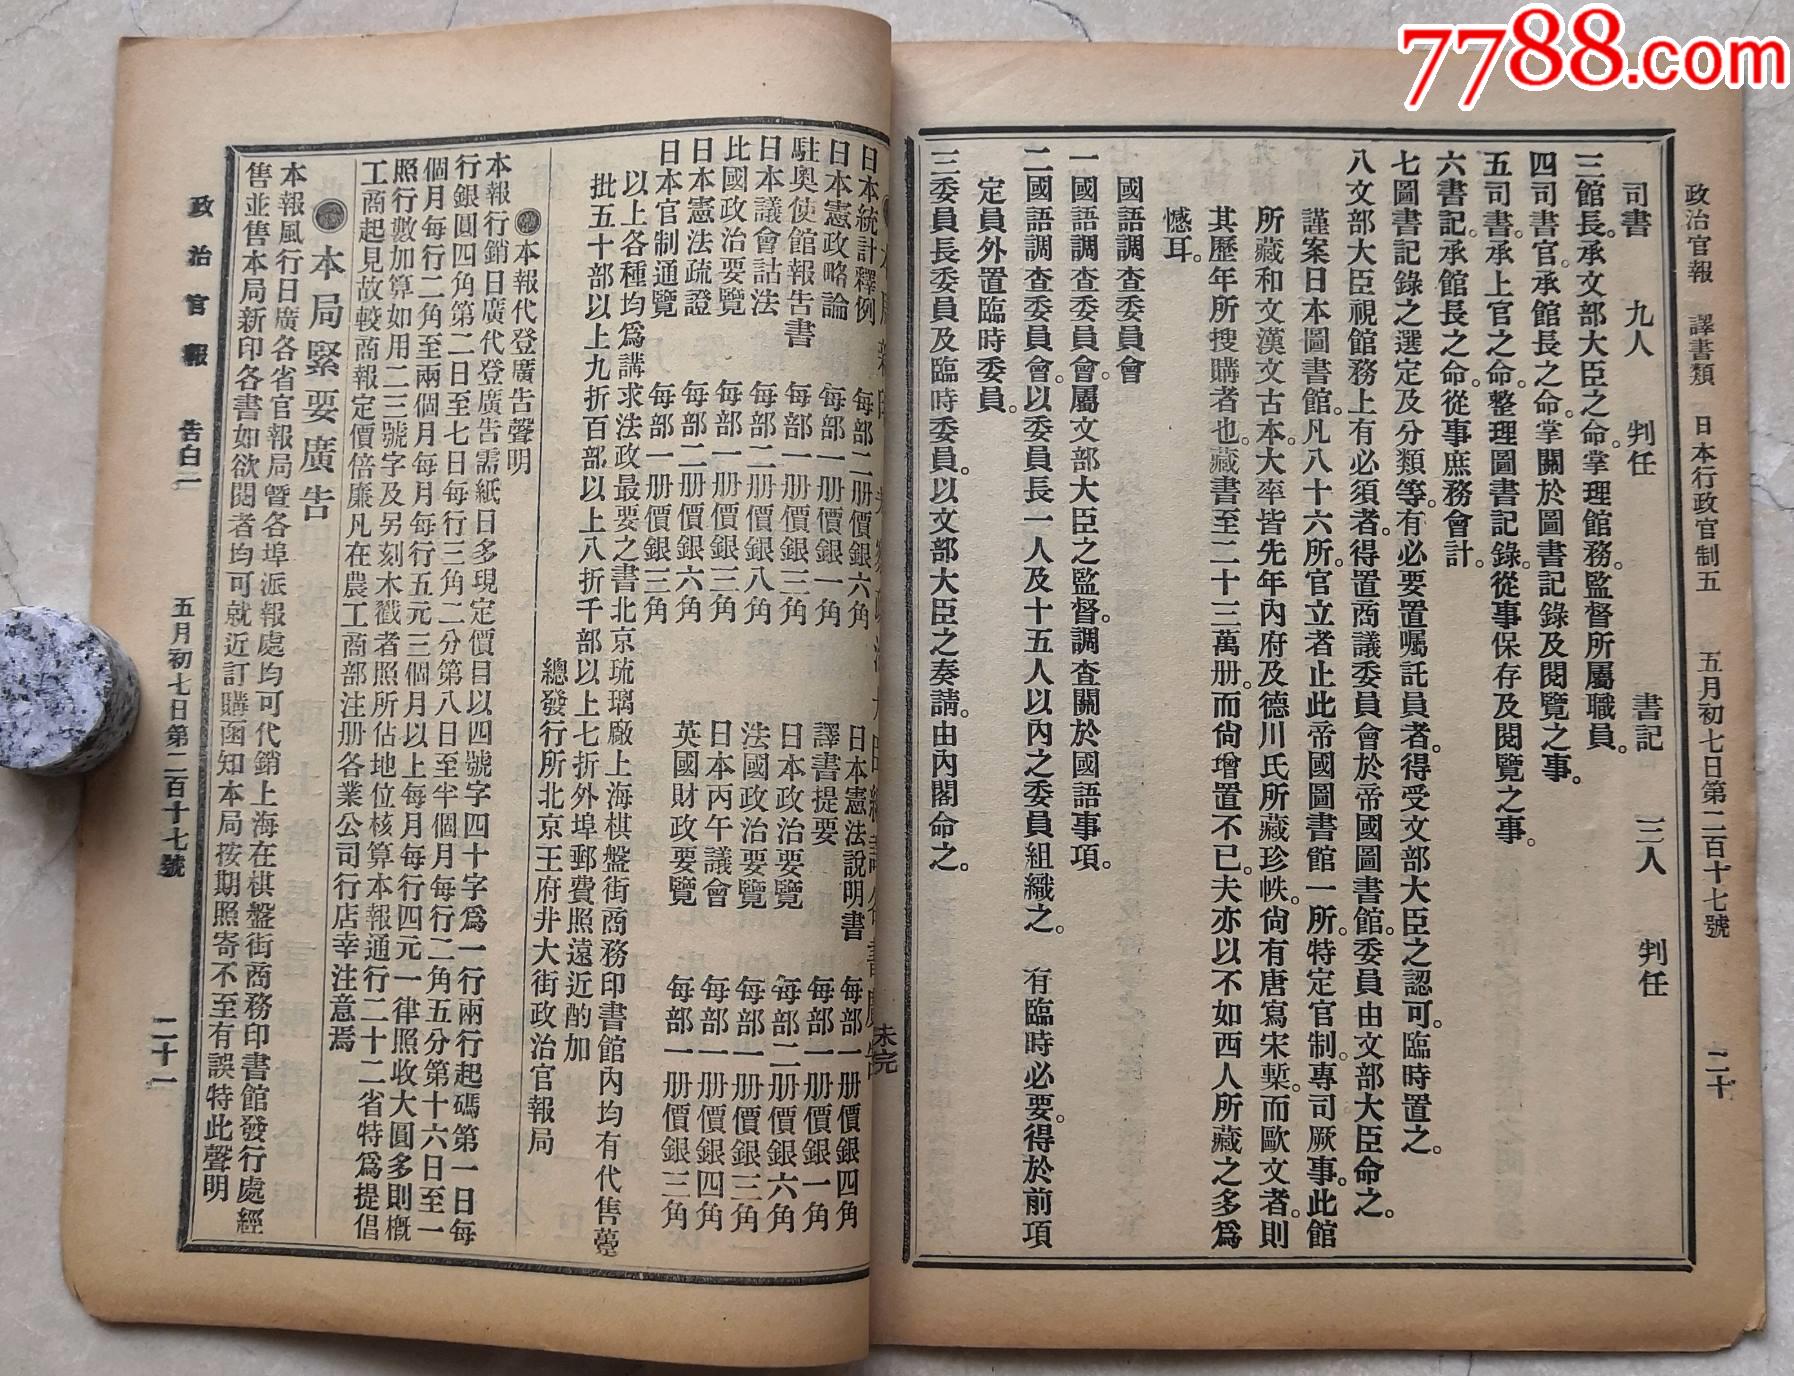 7788.com
政治官報　譯書類　日本行政官制五　五月初七日第二百十七號　二十
司書　九人　判任　書記　三人　判任
三館長。承文部大臣之命。掌理館務。監督所屬職員。
四司書官。承館長之命。掌關於圖書記錄及閱覽之事。
五司書。承上官之命。整理圖書記錄。從事保存及閱覽之事。
六書記。承館長之命。從事庶務會計。
七圖書記錄之選定及分類等。有必要置囑託員者。得受文部大臣之認可。臨時置之。
八文部大臣視館務上有必須者。得置商議委員會於帝國圖書館。委員由文部大臣命之。
謹案日本圖書館。凡八十六所。官立者止此帝國圖書館一所。特定官制。專司厥事。此館
所藏和文漢文古本。大率皆先年內府及德川氏所藏珍帙。尙有唐寫宋槧。而歐文者。則
其歷年所搜購者也。藏書至二十三萬册。而尙增置不已。夫亦以不如西人所藏之多爲
憾耳。
國語調查委員會
一國語調查委員會。屬文部大臣之監督。調查關於國語事項。
二國語調查委員會。以委員長一人及十五人以內之委員組織之。　有臨時必要。得於前項
定員外置臨時委員。
三委員長委員及臨時委員。以文部大臣之奏請。由內閣命之。
未完
日本統計釋例　每部二册價銀六角　日本憲法說明書　每部一册價銀四角
日本憲政略論　每部一册價銀一角　譯書提要　每部一册價銀一角
駐奧使館報告書　每部一册價銀三角　日本政治要覽　每部二册價銀六角
日本議會詁法　每部二册價銀八角　法國政治要覽　每部一册價銀三角
比國政治要覽　每部一册價銀三角　日本丙午議會　每部一册價銀四角
日本憲法疏證　每部二册價銀六角　英國財政要覽　每部一册價銀三角
日本官制通覽　每部一册價銀三角
以上各種均爲講求法政最要之書北京琉璃廠上海棋盤街商務印書館內均有代售躉
批五十部以上九折百部以上八折千部以上七折外埠郵費照遠近酌加
總發行所北京王府井大街政治官報局
本報代登廣告聲明
本報行銷日廣代登廣告需紙日多現定價目以四號字四十字爲一行兩行起碼第一日每
行銀圓四角第二日至七日每行三角二分第八日至半個月每行二角五分第十六日至一
個月每行二角至兩個月每月每行五元三個月以上每月每行四元一律照收大圓多則概
照行數加算如用二三號字及另刻木戳者照所佔地位核算本報通行二十二省特爲提倡
工商起見故較商報定價倍廉凡在農工商部注册各業公司行店幸注意焉
本局緊要廣告
本報風行日廣各省官報局曁各埠派報處均可代銷上海在棋盤街商務印書館發行處經
售並售本局新印各書如欲閱者均可就近訂購函知本局按期照寄不至有誤特此聲明
政治官報　告白一　五月初七日第二百十七號　二十一